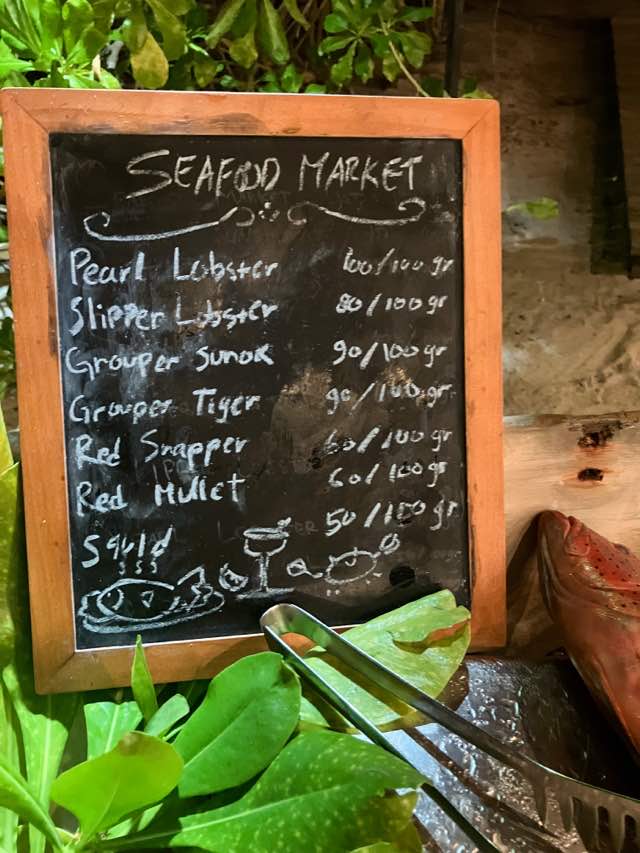 SEAFOOD MARKET
Pearl Lobster 100/100 gr
Slipper Lobster 80/100 gr
Grouper Sunok 90/100 gr
Grouper Tiger 90/100 gr
Red Snapper 60/100 gr
Red Mullet 60/100 gr
Squid 50/100 gr